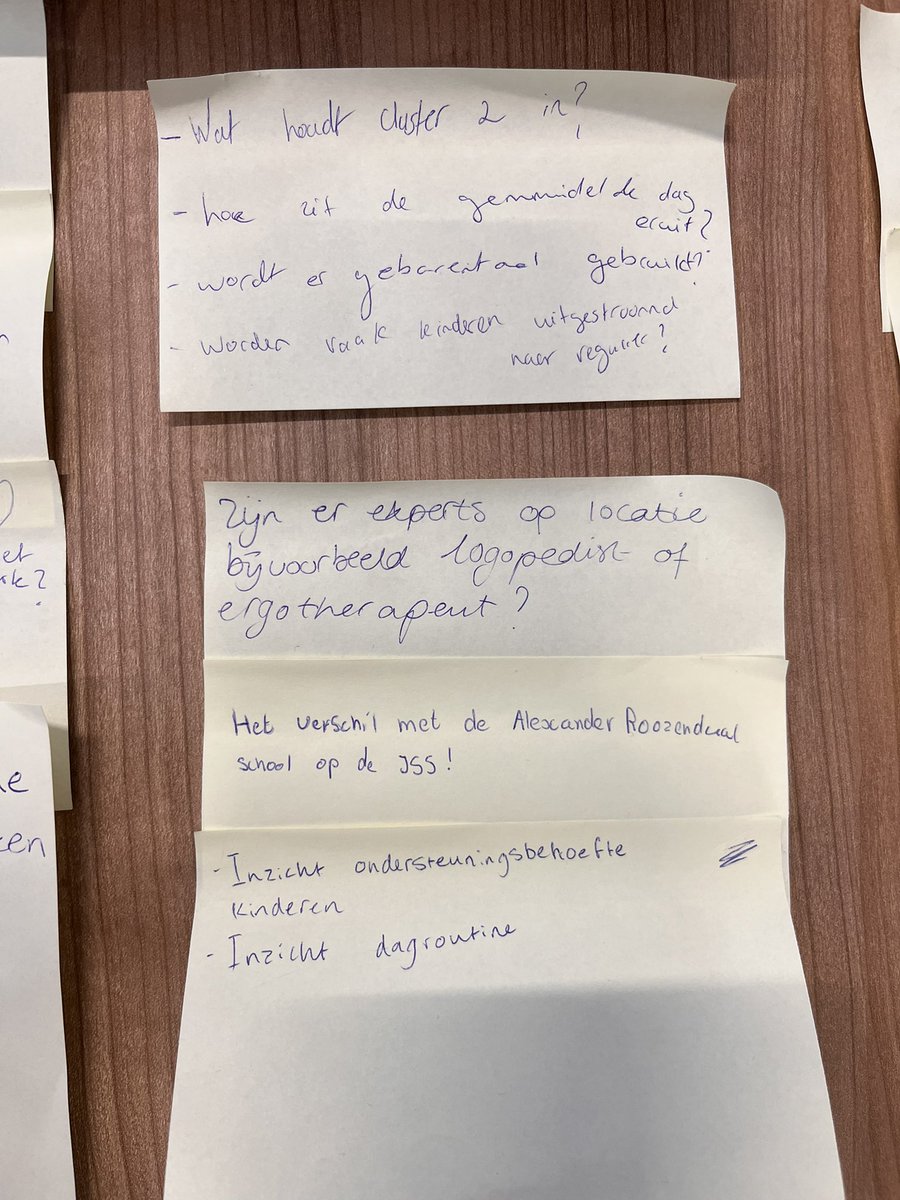 - Wat houdt cluster 2 in?
- hoe zit de gemmidelde dag
eruit?
- wordt er gebarentaal gebruikt?
- worden vaak kinderen uitgestroomd
naar regulier?
Zijn er experts op locatie
bijvoorbeeld logopedist of
ergotherapeut?
Het verschil met de Alexander Roozendaal
school op de JSS!
- Inzicht ondersteuningsbehoefte
kinderen
- Inzicht dagroutine